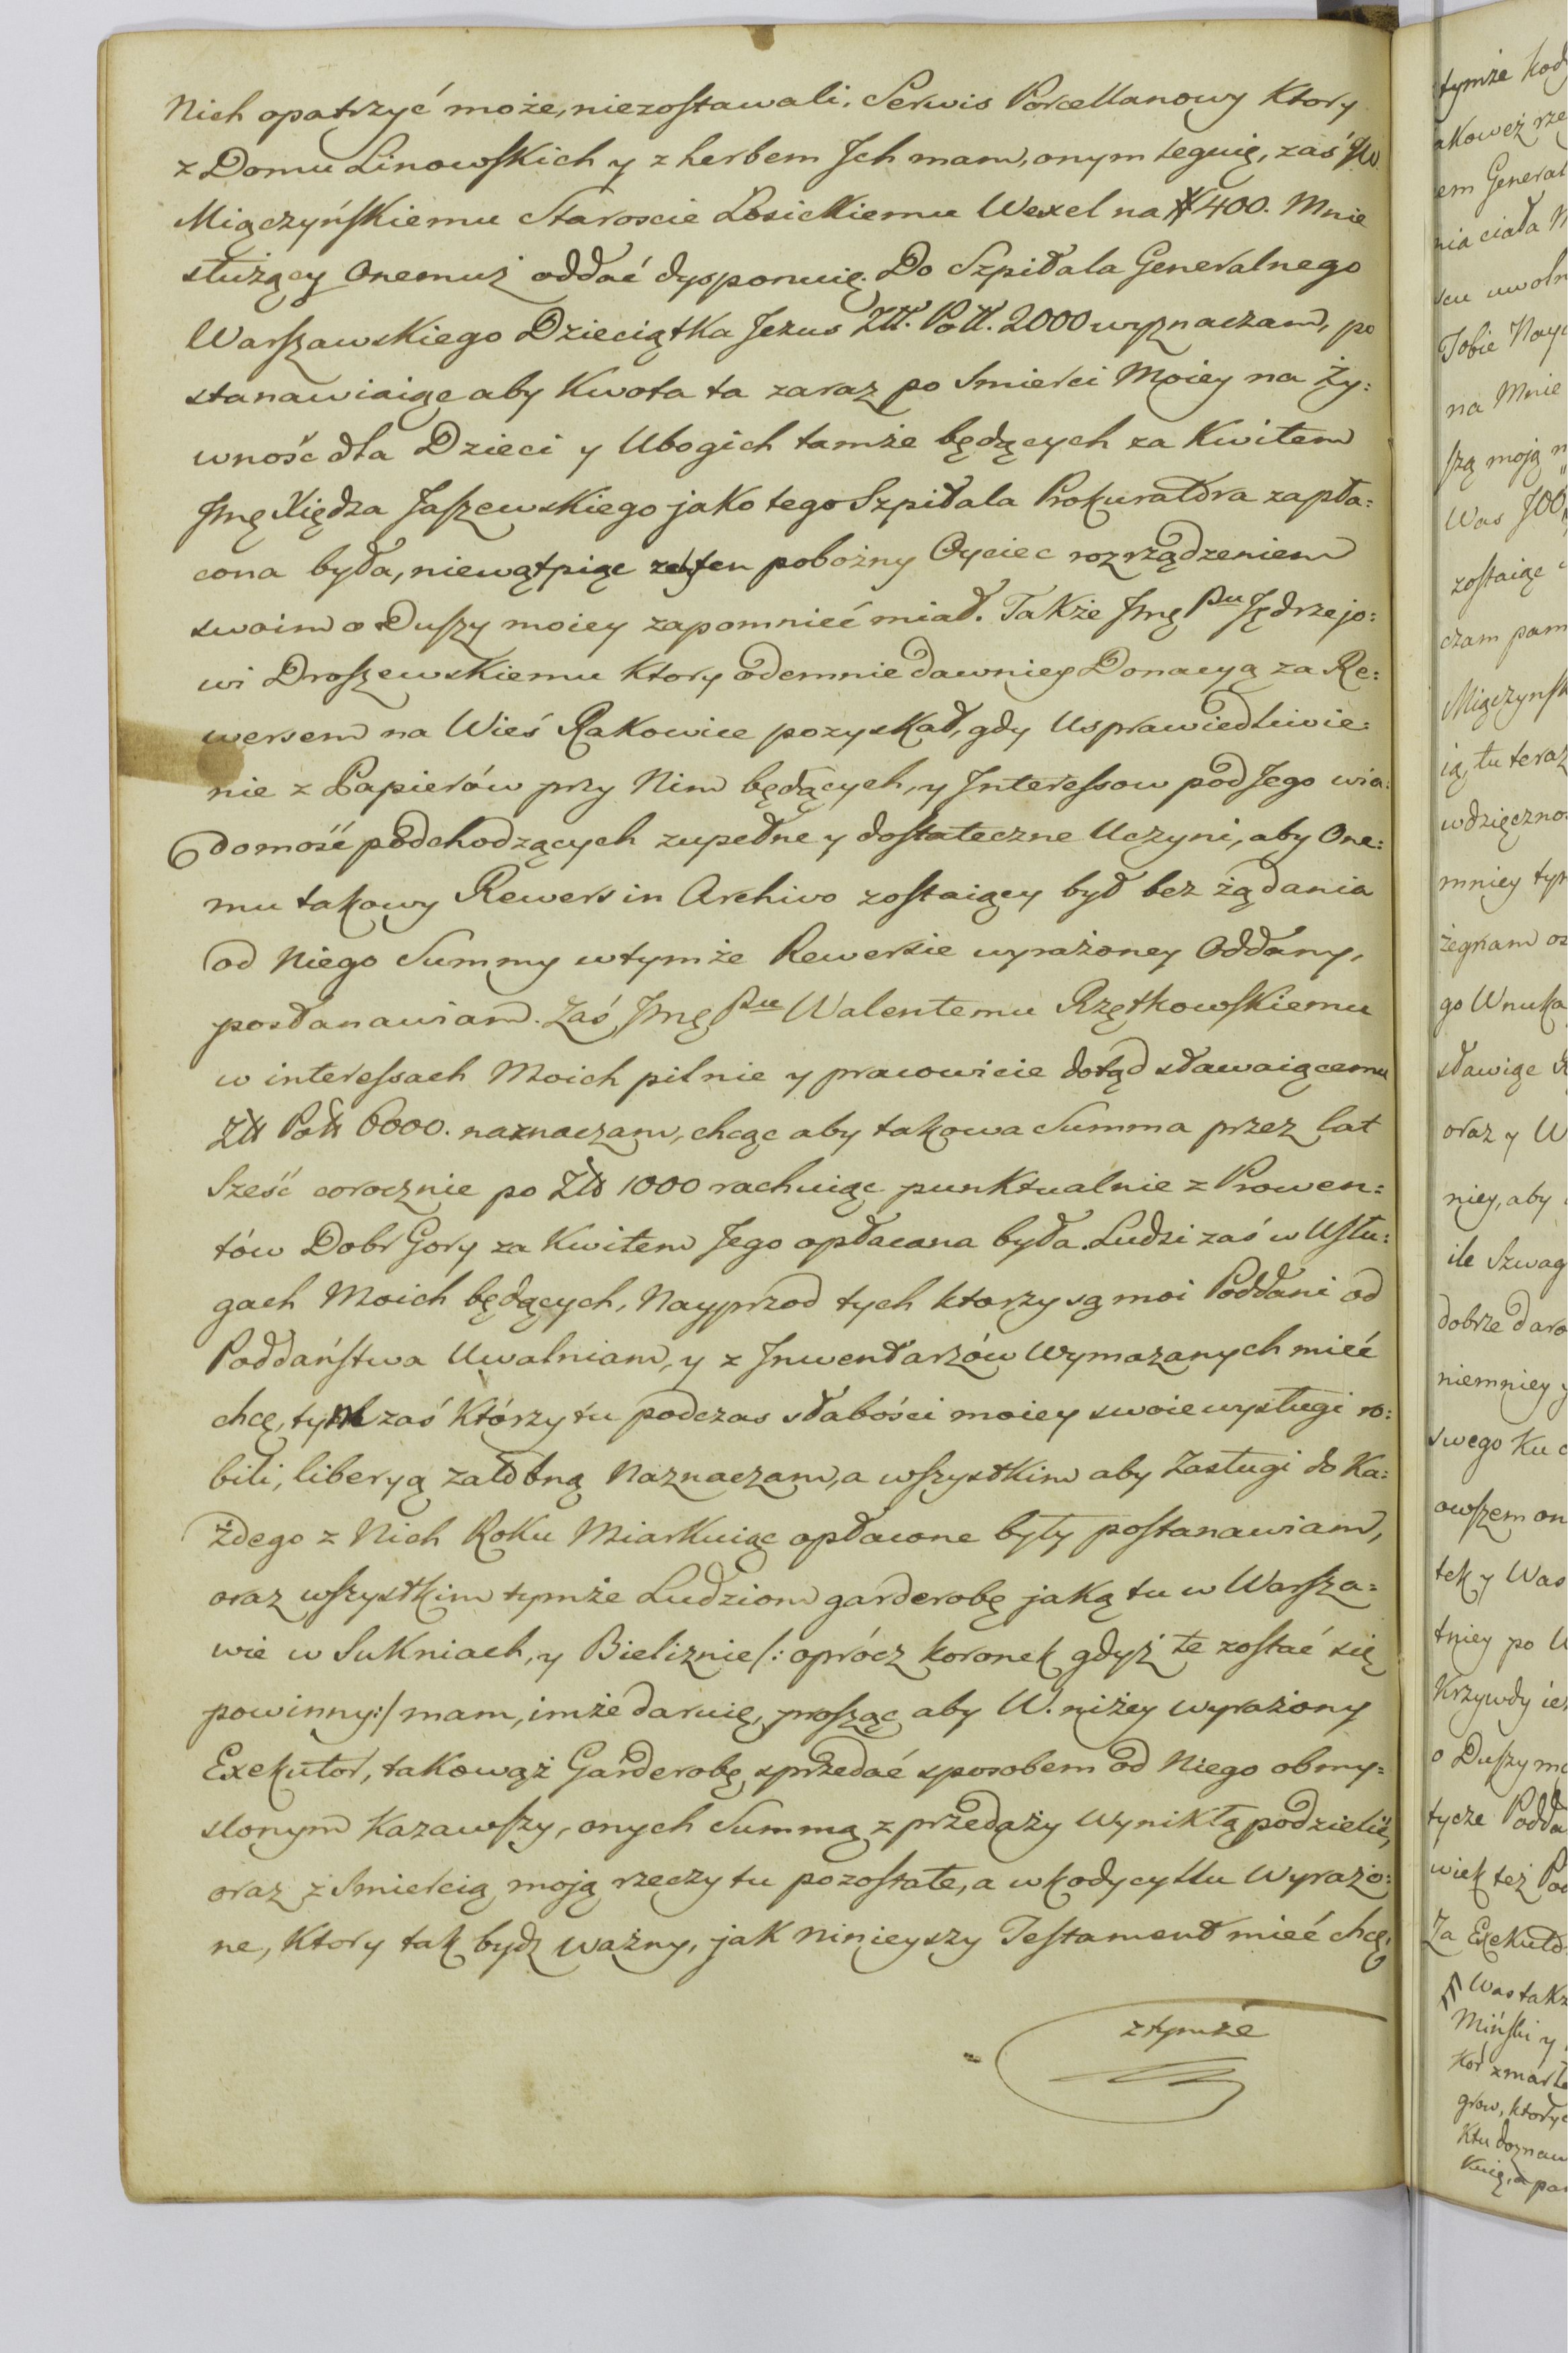 Nich opatrzyć może, niezostawali. Serwis Porcellanowy Ktory
z Domu Linowskich y z herbem Jch mam, onym leguię, zaś JW
Miączyńskiemu Staroscie Łosickiemu Wexel na # 400. Mnie
służący Onemuż oddać dysponuię. Do Szpitala Generalnego
Warszawskiego Dzieciątka Jezus Złł. Poll. 2000 wyznaczam, po
stanawiaiąc aby Kwota ta zaraz po Smierci Moiey na Ży:
wność dla Dzieci y Ubogich tamże będących za Kwitem
Jmę Xiędza Jaszewskiego jako tego Szpitala Prokuratora zapła:
cona była, niewątpiąc żeby ten pobożny Oyciec rozrządzeniem
swoim o Duszy moiey zapomnieć miał. Także Jmę Pnu Jędrzejo:
wi Droszewskiemu Ktory odemnie dawniey Donacyą za Re:
wersem na Wieś Rakowice pozyskał, gdy Usprawiedliwie:
nie z Papierów przy Nim będących, y Interessow pod Jego wia:
domość podchodzących zupełne y dostateczne Uczyni, aby One:
mu takowy Rewers in Archivo zostaiący był bez żądania
od Niego Summy w tymże Rewersie wyrażoney Oddany,
postanawiam. Zaś Jmę Pnu Walentemu Rzętkowskiemu
w interessach Moich pilnie y pracowicie dotąd stawaiącemu
Złł Poll 6000. naznaczam, chcąc aby takowa Summa przez lat
Sześć corocznie po Złł 1000 rachuiąc punktualnie z Prowen:
tów Dobr Gory za Kwitem Jego opłacana była. Ludzi zaś w Usłu:
gach Moich będących, Nayprzod tych ktorzy są moi Poddani od
Poddaństwa Uwalniam, y z Inwentarzów Wymazanych mieć
chcę, tym zaś Którzy tu podczas słabości moiey swoie wysługi ro:
bili, liberyą żałobną Naznaczam, a wszystkim aby Zasługi do Ka:
żdego z Nich Roku Miarkuiąc opłacone były postanawiam,
oraz wszystkim tymże Ludziom garderobę jaką tu w Warsza:
wie w Sukniach, y Bieliznie /: oprócz koronek gdyż te zostać się
powinny :/ mam, imże daruię, prosząc aby W. niżey wyrażony
Exekutor, takowąż Garderobę sprzedać sposobem od Niego obmy:
slonym Kazawszy, onych Summą z przedaży Wynikłą podzielił,
oraz z Smiercią moją rzeczy tu pozostałe, a w kodycyllu Wyrażo:
ne, Ktory tak bydź ważny, jak Ninieyszy Testament mieć chcę,
z tymże
tymże kod
akoweż rze
em General
nia ciała M
scu uwoln
Tobie Nay
na Mnie
szą moją
Was JOO
zostaiąc
czam pam
Miączynsk
ią, tu teraz
wdzięcznos
mniey tym
żegnam
go Wnuka
stawiąc
oraz y W
niey, aby
ile Szwag
dobrze daro
niemniey y
swego Ku
owszem on
tek y Was
tniey po
Krzywdy
o Duszy mo
tycze Podda
wiek też Pod
Za Exekuto
Was takż
Miński y
Kor zmarłe
grow, ktorye
Ktu doznaw
Kuię, a par